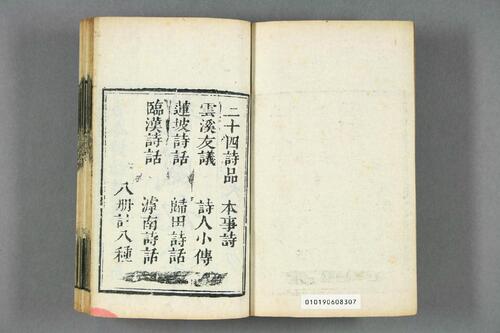 二十四詩品　本事詩
雲溪友議　詩人小傳
蓮坡詩話　歸田詩話
臨漢詩話　滹南詩話
八册計八種
010190608307